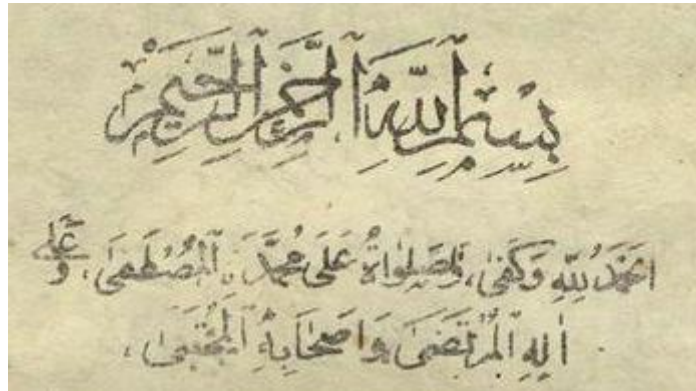 بِسْمِ اللّٰهِ الرَّحْمٰنِ الرَّحِيمِ
اَلْحَمْدُ لِلّٰهِ وَكَفٰى، وَالصَّلٰوةُ عَلٰى مُحَمَّدٍ الْمُصْطَفٰى، وَعَلٰى
اٰلِهِ الْمُرْتَضٰى وَاَصْحَابِهِ الْمُجْتَبٰى،